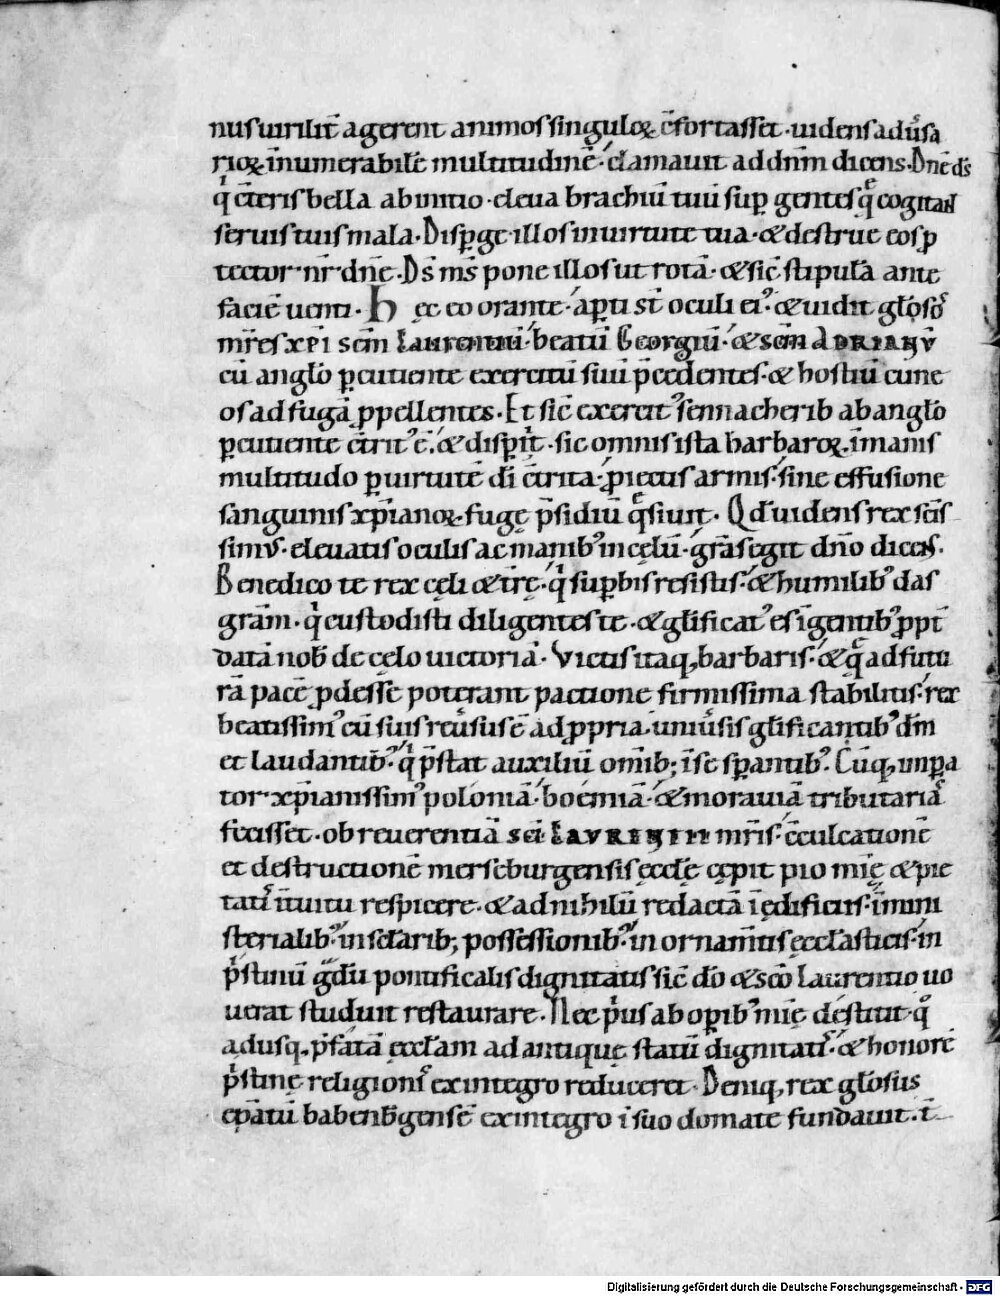 nus uirilit̄ agerent animos singuloꝝ c̄fortasset · uidens adu̓sa
rioꝝ īnumerabilē multitudinē · clamauit ad dn̄m dicens · Dn̄e ds̄
qͥ c̄teris bella ab initio · eleua brachiū tuū suꝑ gentes q̄ cogitant
seruis tuis mala · Disꝑge illos in uirtute tua · & destrue eos ꝓ
tector nr̄ dn̄e · Ds̄ ms̄ pone illos ut rotā · & sic̄ stipulā ante
faciē uenti · Hęc eo orante · aꝑti st̄ oculi ei᾽ · & uidit gl̓osos̓
mr̄es xp̄i sc̄m Laurentiū · beatū Georgiū · & sc̄m ADRIANV̄
cū angl̓o ꝑcutiente exercitū suū p̄cedentes · & hostiū cune
os ad fugā ꝓpellentes · Et sic̄ exercit᾽ sennacherib ab angl̓o
ꝑcutiente c̄trit᾽ ē · & disꝑit · sic omnis ista barbaroꝝ īmanis
multitudo ꝑ uirtutē dī c̄trita · ꝓiectis armis · sine effusione
sanguinis xp̄ianoꝝ · fugę p̄sidiū q̄siuit · Qd̓ uidens rex sc̄is
sim᾽ · eleuatis oculis ac manib᾽ in cęlū · gr̄as egit dn̄o dicens ·
Benedico te rex cęli & tr̄ę · qͥ suꝑbis resistis · & humilib᾽ das
grām · qͥ custodisti diligentes te · & gl̓ificat᾽ es ī gentib᾽ ꝓpt̄
datā nob̄ de cęlo uictoriā · Victis itaq; barbaris · & q̄ ad futu
rā pacē ꝓdesse poterant pactione firmissima stabilitis · rex
beatissim᾽ cū suis reu̓sus ē ad ꝓpria · uniu̓sis gl̓ificantib᾽ dn̄m
et laudantib᾽ · qͥ p̄stat auxiliū om̄ib; ī se sꝑantib᾽ · Cūq; imꝑa
tor xp̄ianissim᾽ poloniā · boemiā · & morauiā tributariā
fecisset · ob reuerentiā sc̄i LAVRENTII mr̄is · c̄culcationē
et destructionē merseburgensis ęccl̓ę cępit pio mīę & pie
tatis̓ ītuitu respicere · & ad nihilū redactā ī ędificiis · ī mini
sterialib᾽ · in scl̓arib; possessionib᾽ · in ornam̄tis ęccl̓asticis · in
pͥstinū gͣdū pontificalis dignitatis sic̄ dō & sc̄o Laurentio uo
uerat studuit restaurare · Nec pͥus ab oꝑib᾽ mīę destitit · qͦ
adusq; p̄fatā ęccl̓am ad antiquę statū dignitatis̓ · & honorē
pͥstinę religionis̓ ex integro reduceret · Deniq; rex gl̓osus
ep̄atū babenb̓gensē ex integro ī suo domate fundauit · ī
Digitalisierung gefördert durch die Deutsche Forschungsgemeinschaft - DFG